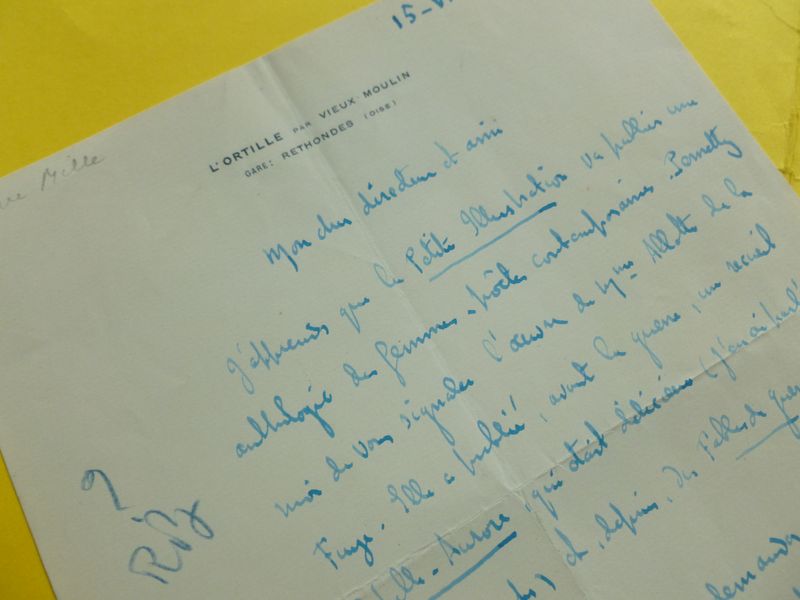 15-
Mille
L'ORTILLE PAR VIEUX MOULIN
GARE: RETHONDES (OISE)
Mon cher directeur et ami
J'apprends que la Petite Illustration va publier une
anthologie des femmes-poètes contemporaines. Permettez
moi de vous signaler l'œuvre de Mme Allotte de la
Fuye. Elle a publié, avant la guerre, un recueil
-Aurore, qui était délicieux (j'en ai parlé
et, depuis, des
demander